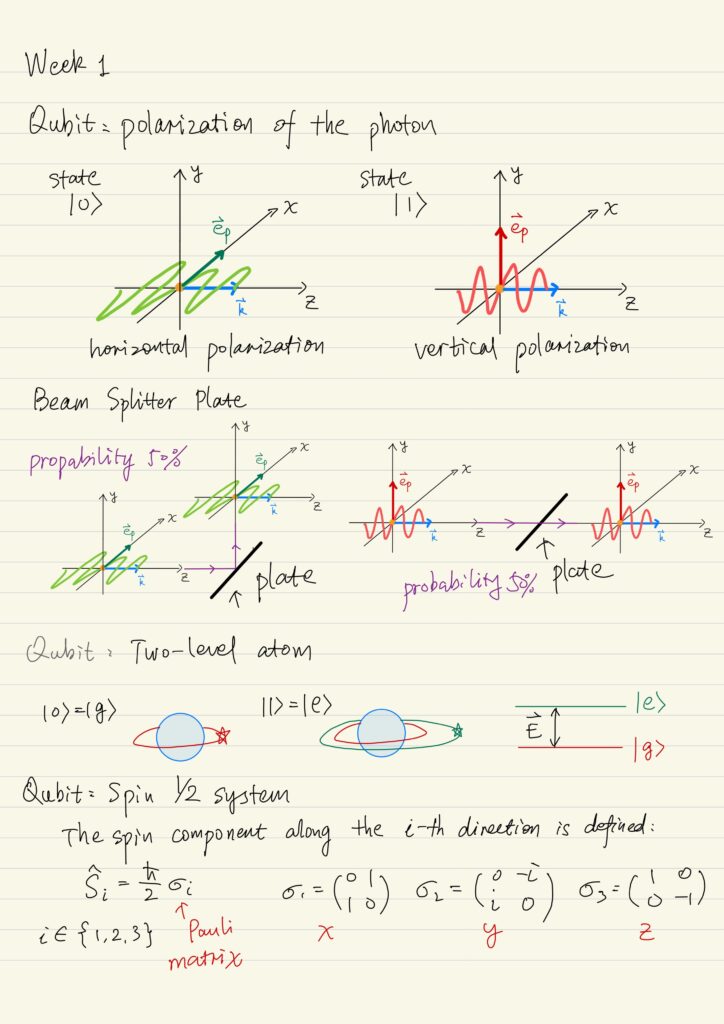 Week 1
Qubit: polarization of the photon
state
|0>
y
x
e⃗p
z
k⃗
horizontal polarization
state
|1>
y
x
e⃗p
z
k⃗
vertical polarization
Beam Splitter Plate
propability 50%
y
x
e⃗p
z
k⃗
y
x
e⃗p
z
k⃗
plate
y
x
e⃗p
z
k⃗
y
x
e⃗p
z
k⃗
probability 50%
plate
Qubit: Two-level atom
|0>=|g>
|1>=|e>
|e>
E⃗
|g>
Qubit: Spin 1/2 system
The spin component along the i-th direction is defined:
Ŝi = ħ/2 σi
σ1 = (0 1
1 0)
σ2 = (0 -i
i 0)
σ3 = (1 0
0 -1)
i ∈ {1,2,3}
Pauli
matrix
x
y
z